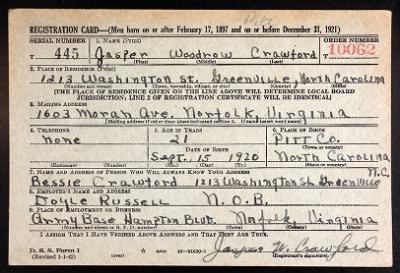 REGISTRATION CARD—(Men born on or after February 17, 1897 and on or before December 31, 1921)
SERIAL NUMBER 1. NAME (Print) ORDER NUMBER
T 445 Jasper Woodrow Crawford 10062
(First) (Middle) (Last)
2. PLACE OF RESIDENCE (Print)
1213 Washington St. Greenville, North Carolina
(Number and street) (Town, township, village, or city) (County) (State)
[THE PLACE OF RESIDENCE GIVEN ON THE LINE ABOVE WILL DETERMINE LOCAL BOARD JURISDICTION; LINE 2 OF REGISTRATION CERTIFICATE WILL BE IDENTICAL]
3. MAILING ADDRESS
1603 Moran Ave. Norfolk, Virginia
[Mailing address if other than place indicated on line 2. If same insert word same]
4. TELEPHONE 5. AGE IN YEARS 6. PLACE OF BIRTH
None 21 Pitt Co.
DATE OF BIRTH (Town or county)
Sept. 15 1920 North Carolina
(Mo.) (Day) (Yr.) (State or country)
7. NAME AND ADDRESS OF PERSON WHO WILL ALWAYS KNOW YOUR ADDRESS N.C.
Bessie Crawford 1213 Washington St Greenville
8. EMPLOYER'S NAME AND ADDRESS
Doyle Russell N.O.B.
9. PLACE OF EMPLOYMENT OR BUSINESS
Army Base Hampton Blvt. Norfolk, Virginia
(Number and street or R. F. D. number) (Town) (County) (State)
I AFFIRM THAT I HAVE VERIFIED ABOVE ANSWERS AND THAT THEY ARE TRUE.
D. S. S. Form 1
(Revised 1-1-42) (over) Jasper W. Crawford
(Registrant's signature)